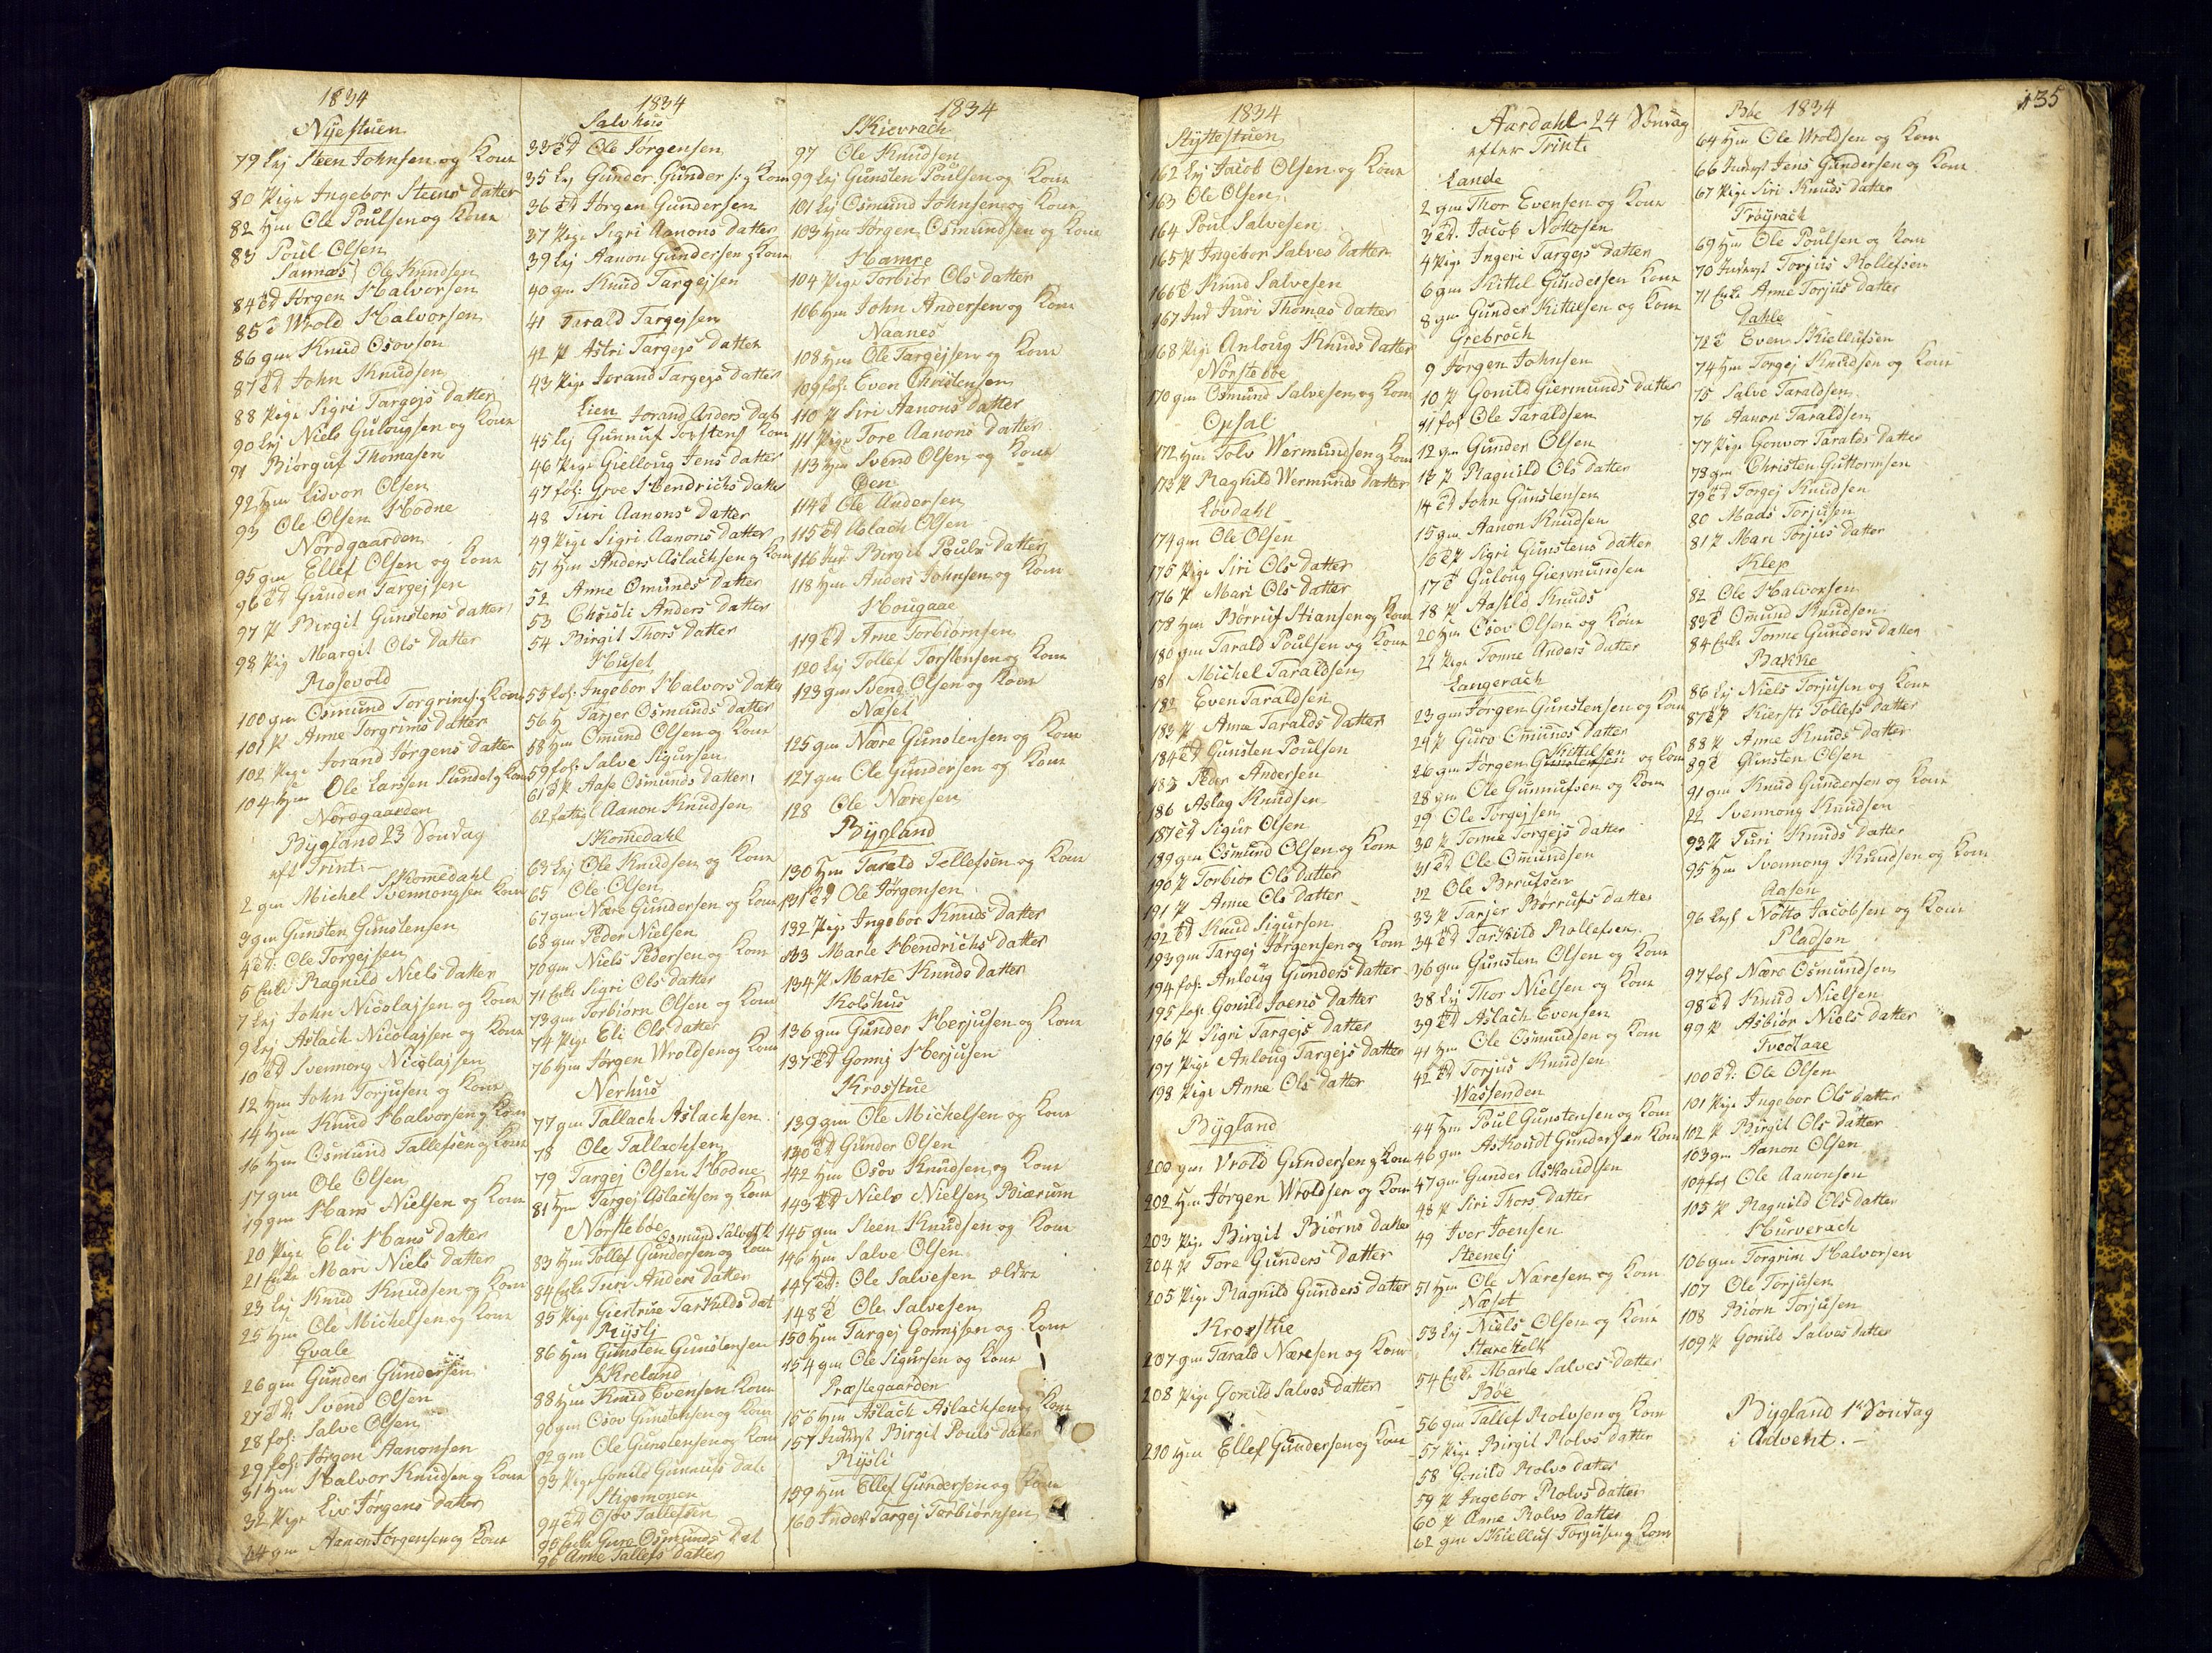 1834
Nyestuen
79 Lej Steen Johnsen og Kone
80 Pige Ingebor Steens Datter
82 Hm Ole Poulsen og Kone
83 Poul Olsen
Sannæs Ole Knudsen
84 ed Jørgen Halvorsen
85 e Wrold Halvorsen
86 gm Knud Osovson
87 ed John Knudsen
88 Pige Sigri Targejs Datter
90 Lej Niels Gulougsen og Kone
91 Biørguf Thomasen
92 Hm Eidvor Olsen
93 Ole Olsen Hodne
Nordgaarden
95 gm Ellef Olsen og Kone
96 ed Gunder Targejsen
97 P Birgit Gunstens Datter
98 Pig Margit Ols Datter
Rosevold
100 gm Osmund Torgrims: og Kone
101 P Anne Torgrims Datter
102 Pige Jorand Jørgens Datter
104 Hm Ole Larssen Sundet og Kone
Nordgaarden
Bygland 23 Søndag
eft Trint: –
Skomedahl
2 gm Michel Svennongsen Kone
3 gm Gunsten Gunstensen
4 ed: Ole Torgejsen
5 Enke Ragnild Niels Datter
7 Lej John Nicolajsen og Kone
9 Lej Aslach Nicolajsen og Kone
10 ed Svennong Nicolajsen
12 Hm John Torjusen og Kone
14 Hm Knud Halvorsen og Kone
16 Hm Osmund Tallefsen og Kone
17 gm Ole Olsen
19 gm Hans Nielsen og Kone
20 Pige Eli Hans Datter
21 Enke Mari Niels Datter
23 Lej Knud Knudsen og Kone
25 Hm Ole Michelsen og Kone
Qvale
26 gm Gunder Gundersen
27 ed: Svend Olsen
28 fos: Salve Olsen
29 fos: Jørgen Aanonsen
31 Hm Halvor Knudsen og Kone
32 Pige Liv Jørgens Datter
34 gm Aanon Jørgensen og Kone
1834
Salvhuus
33 ed Ole Jørgensen
35 Lej Gunder Gunders: og Kone
36 ed Jørgen Gundersen
37 Pige Sigri Aanons Datter
39 Lej Aanon Gundersen og Kone
40 gm Knud Targejsen
41 Tarald Targejsen
42 P Astri Targejs Datter
43 Pige Jorand Targejs Datter
Lien Jorand Anders Dat
45 Lej Gunnuf Torstens Kone
46 Pige Gielloug Jens Datter
47 fos: Groe Hendrichs Datter
48 Turi Aanons Datter
49 Pige Sigri Aanons Datter
51 Hm Anders Aslachsen og Kone
52 Anne Omunds Datter
53 Christi Anders Datter
54 Birgit Thors Datter
Huset
55 fos: Ingebor Halvors Datter
56 Tarjer Osmunds Datter
58 Hm Omund Olsen og Kone
59 fos: Salve Sigursen
61 P Aase Osmunds Datter
62 fattig Aanon Knudsen
Skomedahl
63 Lej Ole Knudsen og Kone
65 Ole Olsen
67 gm Nære Gundersen og Kone
68 gm Peder Nielsen
70 gm Niels Pedersen og Kone
71 Enke Sigri Ols Datter
73 gm Torbiørn Olsen og Kone
74 Pige Eli Ols Datter
76 Hm Jørgen Wroldsen og Kone
Nerhus
77 gm Tallach Aslachsen
78 Ole Tallachsen
79 Targej Olsen Hodne
81 Hm Targej Aslachsen og Kone
Norstebøe
Osmund Salves:
83 Hm Tollef Gundersen og Kone
84 Enke Turi Anders Datter
85 Pige Giertrue Tarkilds Dat
Rysli
86 Hm Gunsten Gunstensen
Skreland
88 Hm Knud Evensen Kone
90 gm Osov Gunstensen og Kone
92 gm Ole Gunstensen og Kone
93 Pige Gonild Gunnufs Dat:
Stigemonen
94 ed Osov Tallefsen
95 Enke Gure Osmunds Dat
96 Anne Tallefs Datter
1834
Skievrach
97 Ole Knudsen
99 Lej Gunsten Poulsen og Kone
101 Lej Osmund Johnsen og Kone
103 Hm Jørgen Osmundsen og Kone
Hamre
104 Pige Torbiør Ols Datter
106 Hm John Andersen og Kone
Naanes
108 Hm Ole Targejsen og Kone
109 fos: Even Christensen
110 P Siri Aanons Datter
111 Pige Tore Aanons Datter
113 Hm Svend Olsen og Kone
Øen
114 e Ole Andersen
115 ed Aslach Olsen
116 Ind Birgit Pouls Datter
118 Hm Anders Johnsen og Kone
Hougaae
119 ed Arne Torbiørnsen
120 Lej Tollef Torstensen og Kone
123 gm Svend Olsen og Kone
Næset
125 gm Nære Gunstensen og Kone
127 gm Ole Gundersen og Kone
128 Ole Næresen
Bygland
130 Hm Tarald Tellefsen og Kone
131 ed Ole Jørgensen
132 Pige Ingebor Knuds Datter
133 Marte Hendrichs Datter
134 P Marte Knuds Datter
Kolshus
136 gm Gunder Herjusen og Kone
137 ed Gonnj Herjusen
Krosstue
139 gm Ole Michelsen og Kone
140 ed Gunder Olsen
142 Hm Osov Knudsen og Kone
143 ed Niels Nielsen Biærum
145 gm Steen Knudsen og Kone
146 Hm Salve Olsen
147 ed: Ole Salvesen ældre
148 e Ole Salvesen
150 Hm Targej Gonnjsen og Kone
154 gm Ole Sigursen og Kone
Præstegaarden
156 Hm Aslach Aslachsen Kone
157 Inderst Birgit Pouls Datter
Rysli
159 Hm Ellef Gundersen og Kone
160 Inder Targej Torbiørnsen
1834
Støttestuen
162 Lej: Jacob Olsen og Kone
163 Ole Olsen
164 Poul Salvesen
165 P Ingebor Salves Datter
166 e Knud Salvesen
167 Ind Turi Thomas Datter
168 Pige Anloug Knuds Datter
Norstebøe
170 gm Osmund Salvesen og Kone
Opsal
172 Hm Tolv Wermundsen og Kone
173 P Ragnild Wermunds Datter
Lovdahl
174 gm Ole Olsen
175 Pige Siri Ols Datter
176 P Mari Ols Datter
178 Hm Børruf Stiansen og Kone
180 gm Tarald Poulsen og Kone
181 Michel Taraldsen
182 Even Taraldsen
183 P Anne Taralds Datter
184 ed Gunsten Poulsen
183 Peder Andersen
186 Aslag Knudsen
187 ed Sigur Olsen
189 gm Osmund Olsen og Kone
190 P Torbiør Ols Datter
191 P Anne Ols Datter
192 ed Knud Sigursen
193 gm Targej Jørgensen og Kone
194 fos: Anloug Gunders Datter
195 fos: Gonild Joens Datter
196 P Sigri Targejs Datter
197 Pige Anloug Targejs Datter
198 Pige Anne Ols Datter
Bygland
200 gm Vrold Gundersen og Kone
202 Hm Jørgen Wroldsen og Kone
203 Pig Birgit Biørns Datter
204 P Tore Gunders Datter
205 Pige Ragnild Gunders Datter
Krosstue
207 gm Tarald Næresen og Kone
208 Pige Gonild Salves Datter
210 Hm Ellef Gundersen og Kone
Aardahl 24 Søndag
efter Trint:
Lande
2 gm Thor Evensen og Kone
3 ed. Jacob Nottosen
4 Pige Ingeri Targejs Datter
6 gm Kittel Gundersen Kone
8 gm Gunder Kittelsen og Kone
Grebroch
9 Jørgen Johnsen
10 P Gonild Giermunds Datter
11 fos Ole Taraldsen
12 gm Gunder Olsen
13 P Ragnild Ols Datter
14 ed John Gunstensen
15 gm Aanon Knudsen
16 P Sigri Gunstens Datter
17 e Guloug Giermundsen
18 P Aasild Knuds
20 Hm Osov Olsen og Kone
21 Pige Tonne Anders Datter
Langerach
23 gm Jørgen Gunstensen og Kone
24 P Guro Omunds Datter
Kittelsen
26 gm Jørgen Gunstensen og Kone
28 gm Ole Gunnufsen og Kone
29 Ole Torgejsen
30 P Tonne Torgejs Datter
31 ed Ole Omundsen
32 Ole Brrufsen
33 P Tarjer Børrufs Datter
34 ed Tarkild Rollefsen
36 gm Gunsten Olsen og Kone
38 Lej Thor Nielsen og Kone
39 ed Aslach Evensen
41 Hm Ole Osmundsen og Kone
42 ed Torjus Knudsen
Wassenden
44 Hm Poul Gunstensen og Kone
46 gm Askoudt Gundersen Kone
47 gm Gunder Askoudtsen
48 P Siri Thors Datter
49 Iver Joensen
Steenelj
51 Hm Ole Naresen og Kone
Næset
53 Lej Niels Olsen og Kone
54 Enke Marte Salves Datter
Bøe
56 gm Tallef Rolvsen og Kone
57 Pige Birgit Rolvs Datter
58 Gonild Rolvs Datter
59 P Ingebor Rolvs Datter
60 P Anne Rolvs Datter
62 gm Skielluf Torjusen og Kone
135
Bøe 1834
64 Hm Ole Wroldsen og Kone
66 Inderst Jens Gundersen og Kone
67 Pige Siri Knuds Datter
Frøyrach
69 Hm Ole Poulsen og Kone
70 Inderst Torjus Rollefsen
71 Enke Anne Torjus Datter
Dahle
72 e Even Skiellufsen
74 Hm Torgej Knudsen og Kone
75 Salve Taraldsen
76 Aanon Taraldsen
77 Pige Gonvor Taralds Datter
78 gm Christen Guttormsen
79 ed Torgej Knudsen
80 Mads Torjusen
81 P Mari Torjus Datter
Klep
82 Ole Halvorsen
83 e Omund Knudsen
84 Enke Tonne Gunders Datter
Bakke
86 Lej Niels Torjusen og Kone
87 P Kiersti Tollefs Datter
88 P Anne Knuds Datter
89 e Gunsten Olsen
91 gm Knud Gundersen og Kone
22 Svennong Knudsen
93 P Turi Knuds Datter
95 Hm Svennong Knudsen og Kone
Aasen
96 Notto Jacobsen og Kone
Pladsen
97 fos Nære Osmundsen
98 ed Knud Nielsen
99 P Asbiør Niels Datter
Tvedtaae
100 ed: Ole Olsen
101 Pige Ingebor Ols Datter
102 P Birgit Ols Datter
103 gm Aanon Olsen
104 fos Ole Aanonsen
105 P Ragnild Ols Datter
Hurverach
106 gm Torgrim Halvorsen
107 Ole Torjusen
108 Biørn Torjusen
109 P Gonild Salves Datter
Bygland 1ste Søndag
i Advent. –